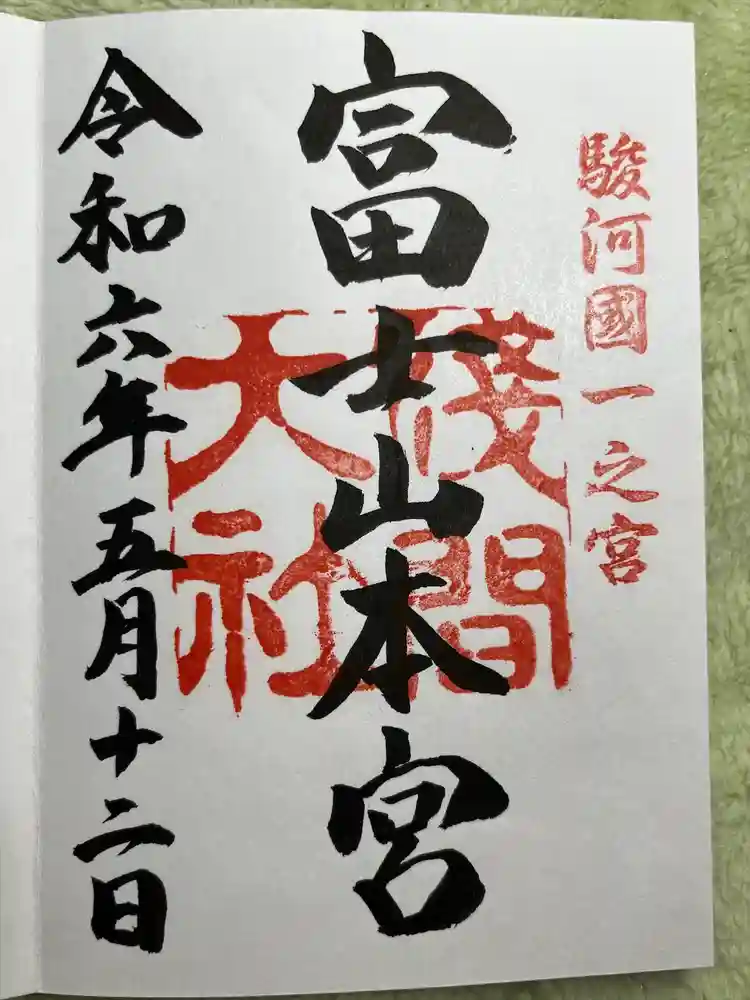 駿河國一之宮
富士山本宮
淺間
大社
令和六年五月十二日